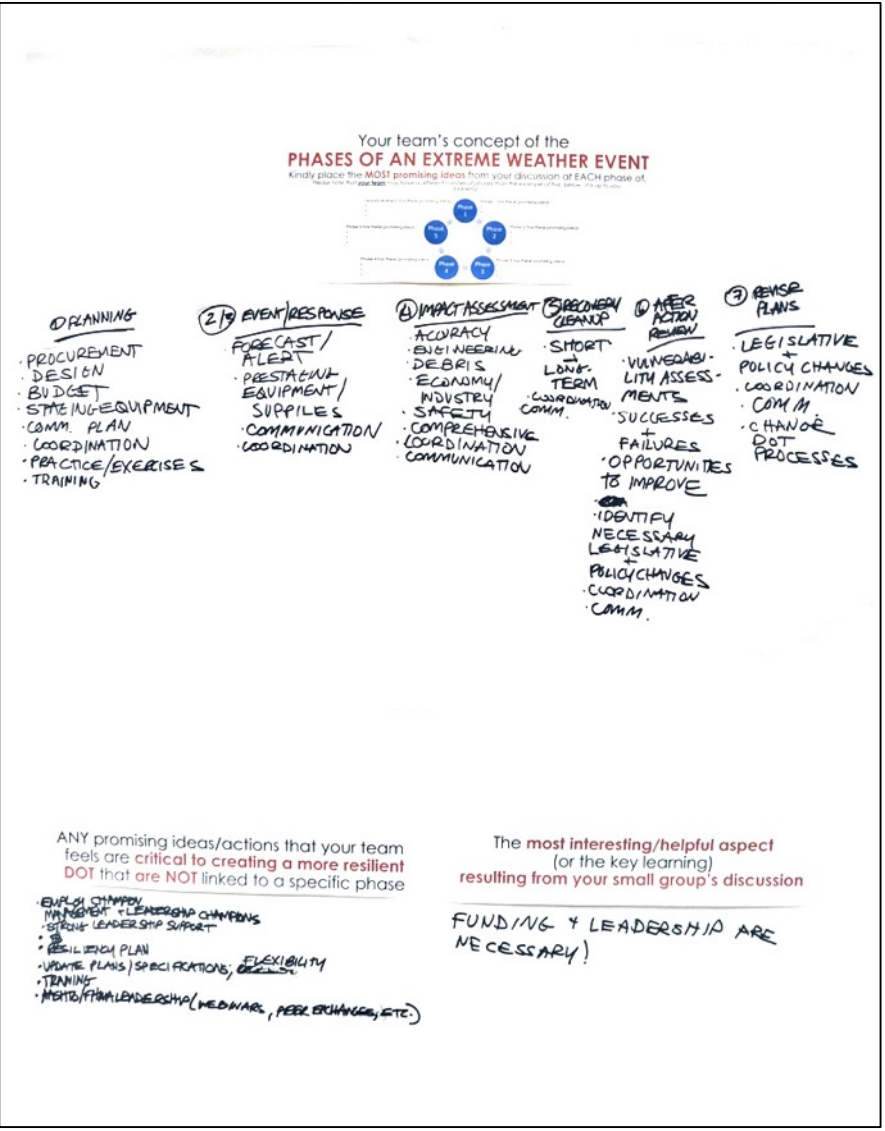 Your team's concept of the
PHASES OF AN EXTREME WEATHER EVENT
Kindly place the MOST promising ideas from your discussion at EACH phase of.
Phase 1
Phase 2
Phase 3
Phase 4
Phase 5
① PLANNING
· PROCUREMENT
· DESIGN
· BUDGET
· STAGING EQUIPMENT
· COMM. PLAN
· COORDINATION
· PRACTICE/EXERCISES
· TRAINING
2/3 EVENT/RESPONSE
FORECAST/
ALERT
· PRESTAGING
EQUIPMENT/
SUPPILES
· COMMUNICATION
· COORDINATION
④ IMPACT ASSESSMENT
· ACCURACY
· ENGINEERING
· DEBRIS
· ECONOMY/
INDUSTRY
· SAFETY
· COMPREHENSIVE
COORDINATION
· COMMUNICATION
⑤ RECOVERY
CLEANUP
· SHORT
→
LONG-
TERM
· COORDINATION
COMM.
⑥ AFTER
ACTION
REVIEW
· VULNERABI-
LITY ASSESS-
MENTS
· SUCCESSES
+
FAILURES
· OPPORTUNITIES
TO IMPROVE
· IDENTIFY
NECESSARY
LEGISLATIVE
+
POLICY CHANGES
· COORDINATION
· COMM.
⑦ REVISE
PLANS
· LEGISLATIVE
+
POLICY CHANGES
· COORDINATION
· COMM.
· CHANGE
DOT
PROCESSES
ANY promising ideas/actions that your team
feels are critical to creating a more resilient
DOT that are NOT linked to a specific phase
· EMPLOY CHAMPION
MANAGEMENT + LEADERSHIP CHAMPIONS
· STRONG LEADERSHIP SUPPORT
· $
· RESILIENCY PLAN
· UPDATE PLANS/SPECIFICATIONS; FLEXIBILITY
· TRAINING
· AASHTO/FHWA LEADERSHIP (WEBINARS, PEER EXCHANGES, ETC.)
The most interesting/helpful aspect
(or the key learning)
resulting from your small group's discussion
FUNDING + LEADERSHIP ARE
NECESSARY!